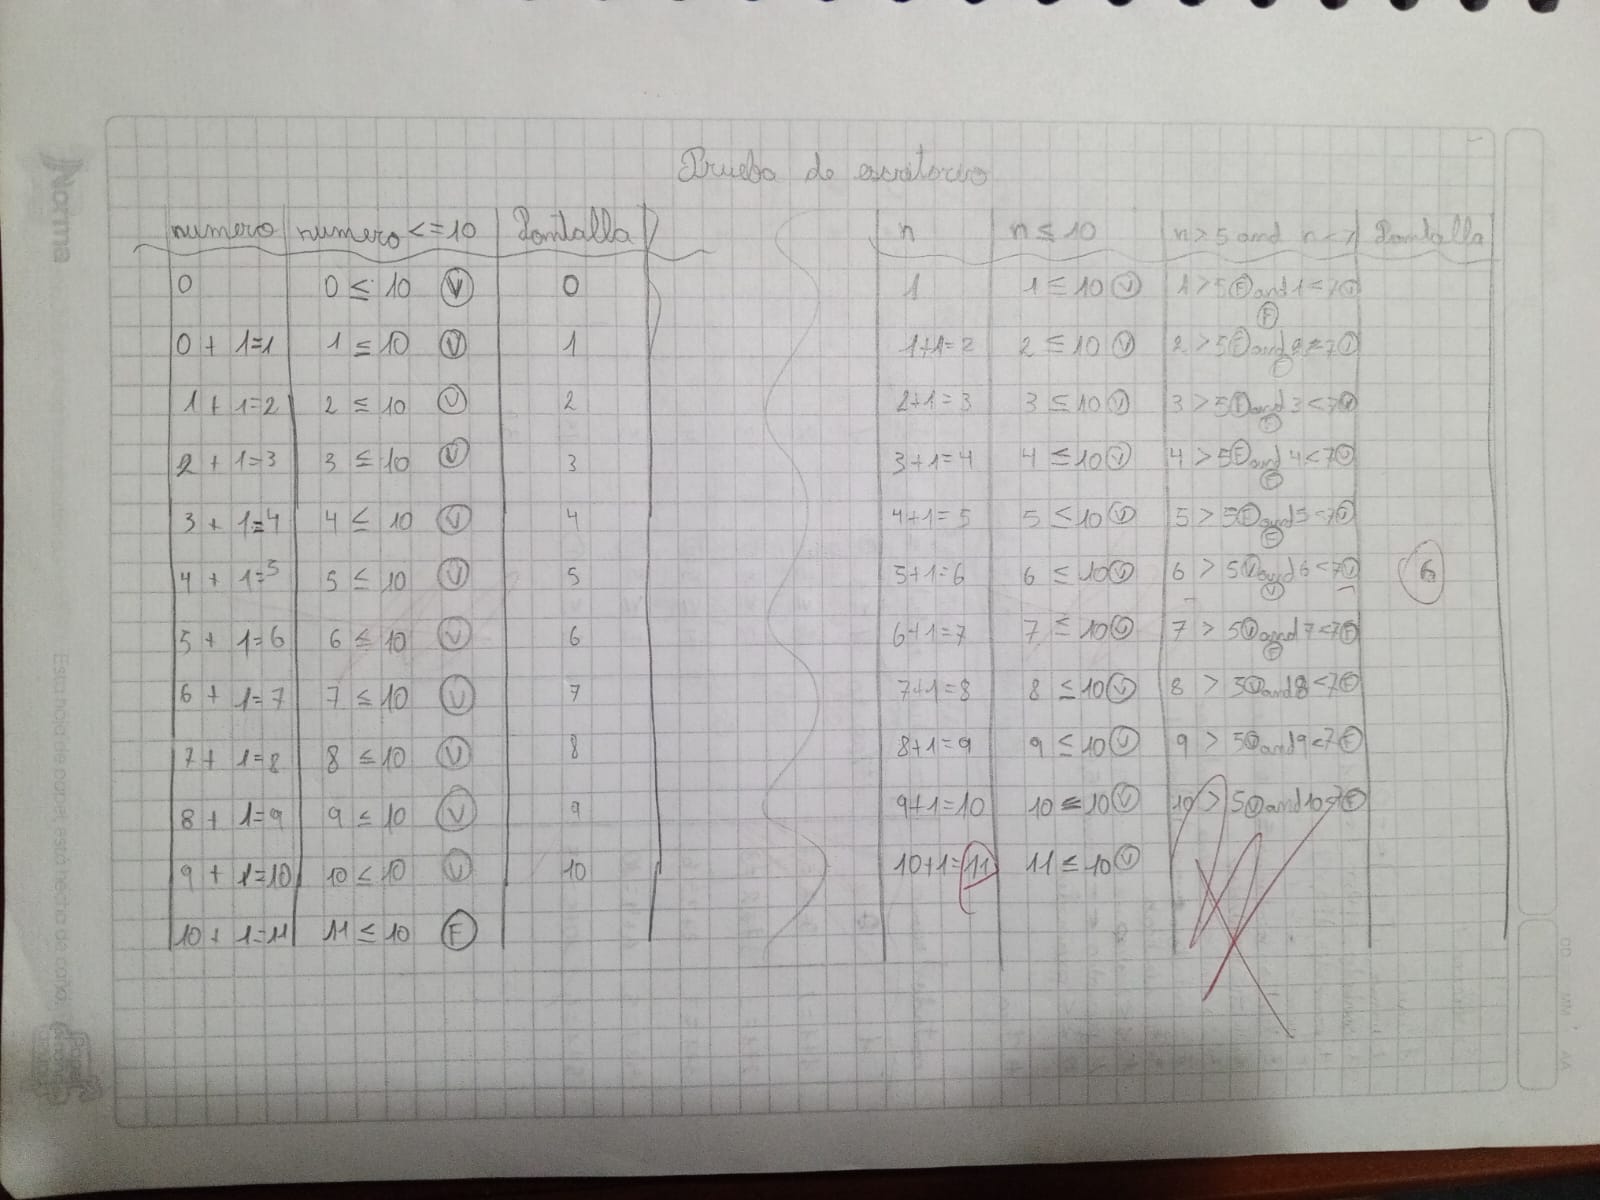 Prueba de escritorio
numero | numero <= 10 | Pantalla
0 | 0 ≤ 10 (V) | 0
0 + 1=1 | 1 ≤ 10 (V) | 1
1 + 1=2 | 2 ≤ 10 (V) | 2
2 + 1=3 | 3 ≤ 10 (V) | 3
3 + 1=4 | 4 ≤ 10 (V) | 4
4 + 1=5 | 5 ≤ 10 (V) | 5
5 + 1=6 | 6 ≤ 10 (V) | 6
6 + 1=7 | 7 ≤ 10 (V) | 7
7 + 1=8 | 8 ≤ 10 (V) | 8
8 + 1=9 | 9 ≤ 10 (V) | 9
9 + 1=10 | 10 ≤ 10 (V) | 10
10 + 1=11 | 11 ≤ 10 (F)
n | n ≤ 10 | n > 5 and n < 7 | Pantalla
1 | 1 ≤ 10 (V) | 1 > 5 (F) and 1 < 7 (V) (F)
1+1=2 | 2 ≤ 10 (V) | 2 > 5 (F) and 2 < 7 (V) (F)
2+1=3 | 3 ≤ 10 (V) | 3 > 5 (F) and 3 < 7 (V) (F)
3+1=4 | 4 ≤ 10 (V) | 4 > 5 (F) and 4 < 7 (V) (F)
4+1=5 | 5 ≤ 10 (V) | 5 > 5 (F) and 5 < 7 (V) (F)
5+1=6 | 6 ≤ 10 (V) | 6 > 5 (V) and 6 < 7 (V) (V) | 6
6+1=7 | 7 ≤ 10 (V) | 7 > 5 (V) and 7 < 7 (F) (F)
7+1=8 | 8 ≤ 10 (V) | 8 > 5 (V) and 8 < 7 (F)
8+1=9 | 9 ≤ 10 (V) | 9 > 5 (V) and 9 < 7 (F)
9+1=10 | 10 ≤ 10 (V) | 10 > 5 (V) and 10 < 7 (F)
10+1=11 | 11 ≤ 10 (V)
Norma